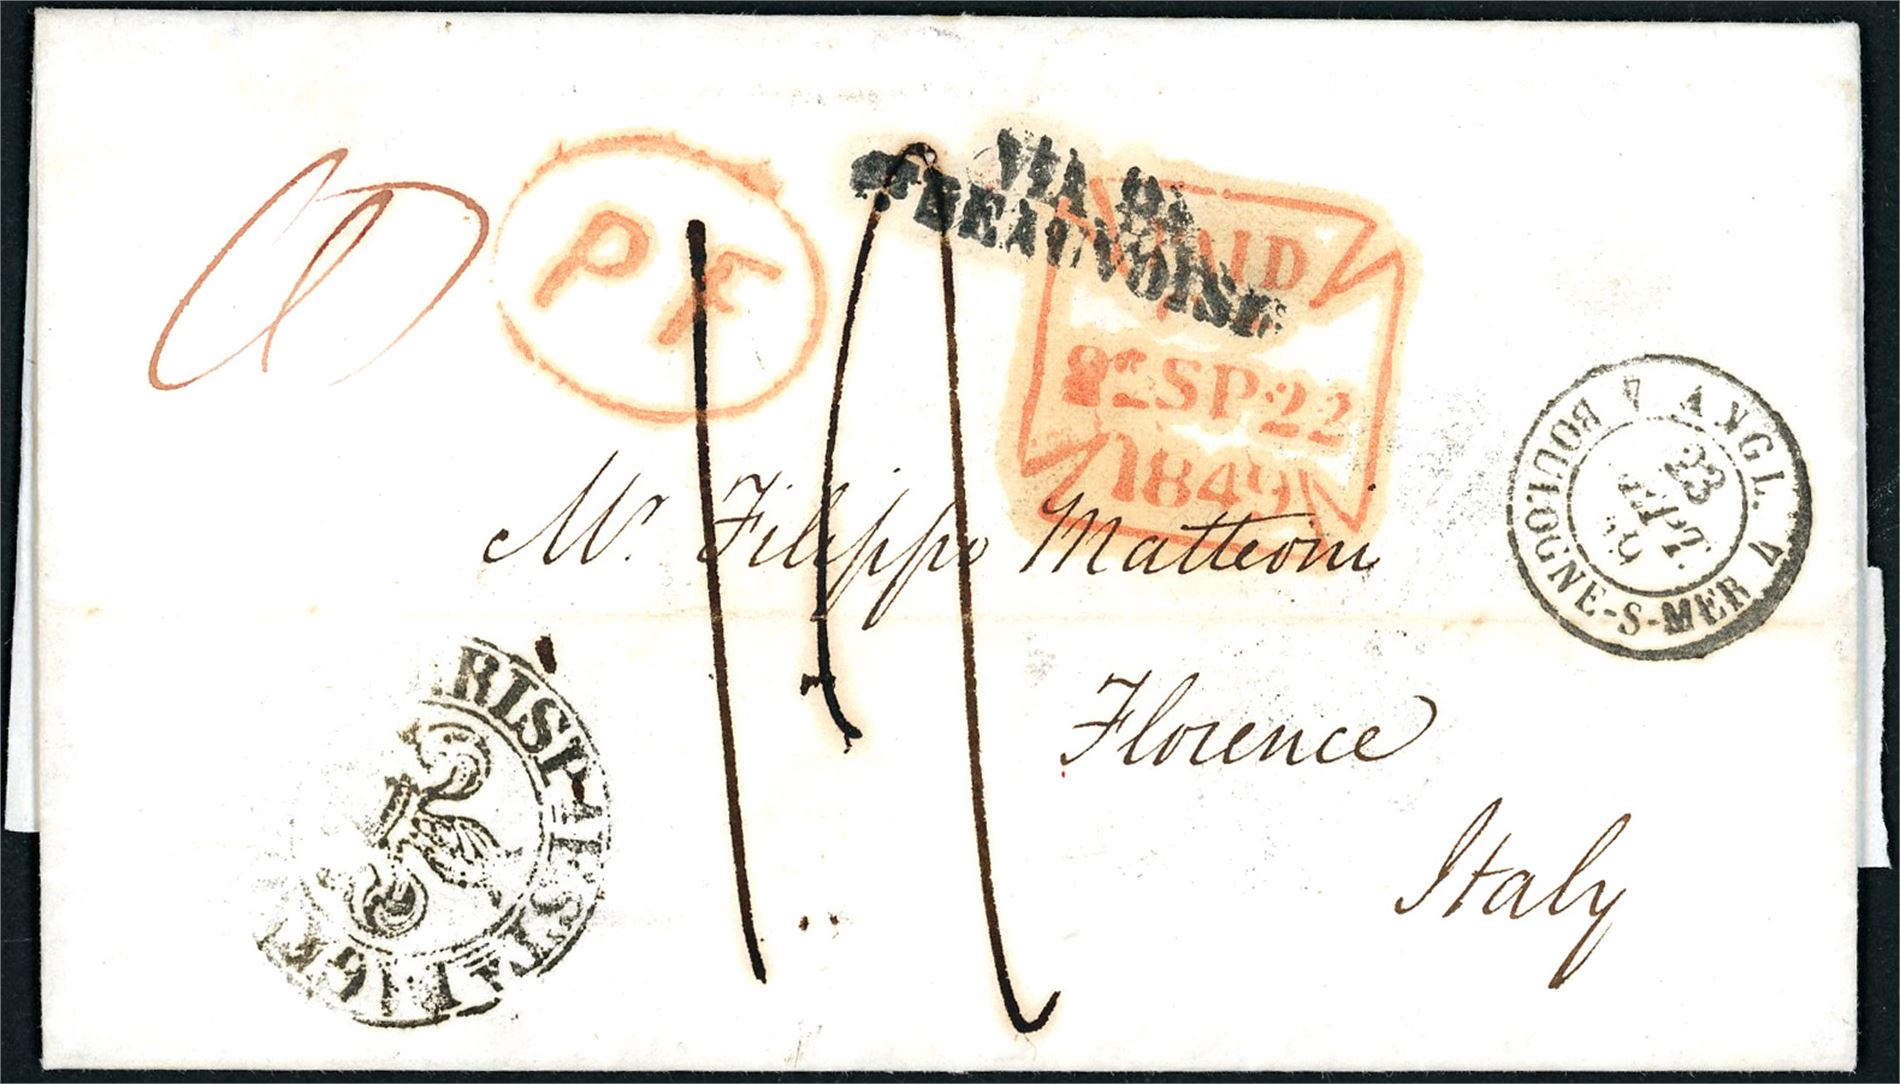 P F
VIA DI
PT BEAUVOISIN
PAID
SP 22
1849
ANGL.
23
SEPT.
BOULOGNE-S-MER
Mr. Filippo Matteoni
Florence
Italy